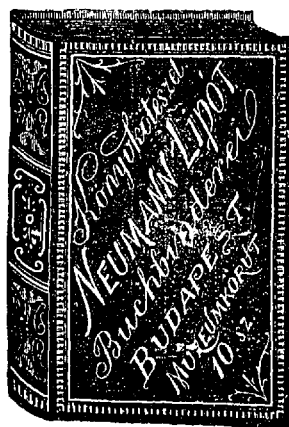 Könyvkötészet
NEUMANN LIPÓT
Buchbinderei
BUDAPEST.
MUZEUMKÖRÚT
10 SZ.